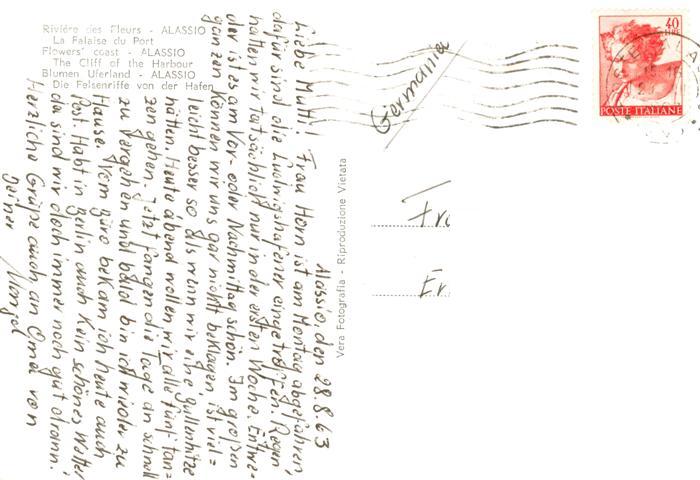 Rivière des Fleurs - ALASSIO
La Falaise du Port
Flowers' coast - ALASSIO
The Cliff of the Harbour
Blumen Uferland - ALASSIO
Die Felsenriffe von der Hafen
Alassio, den 28.8.63
Liebe Mutti! Frau Horn ist am Montag abgefahren,
dafür sind die Ludwigshafener eingetroffen. Regen
hatten wir tatsächlich nur in der ersten Woche. Entwe-
der ist es am Vor- oder Nachmittag schön. Im großen
ganzen können wir uns gar nicht beklagen, ist viel=
leicht besser so als wenn wir eine Bullenhitze
hätten. Heute abend wollen wir alle fünf tan-
zen gehen. Jetzt fangen die Tage an schnell
zu vergehen und bald bin ich wieder zu
Hause. Vom Büro bekam ich heute auch
Post. Habt in Berlin auch kein schönes Wetter
da sind wir doch immer noch gut dran.
Herzliche Grüße auch an Oma von
Deiner
Vera Fotografia - Riproduzione Vietata
Germania
40
POSTE ITALIANE
Fra